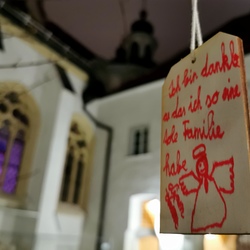 Ich bin dankba
a das ich so eine
tole Familie
habe